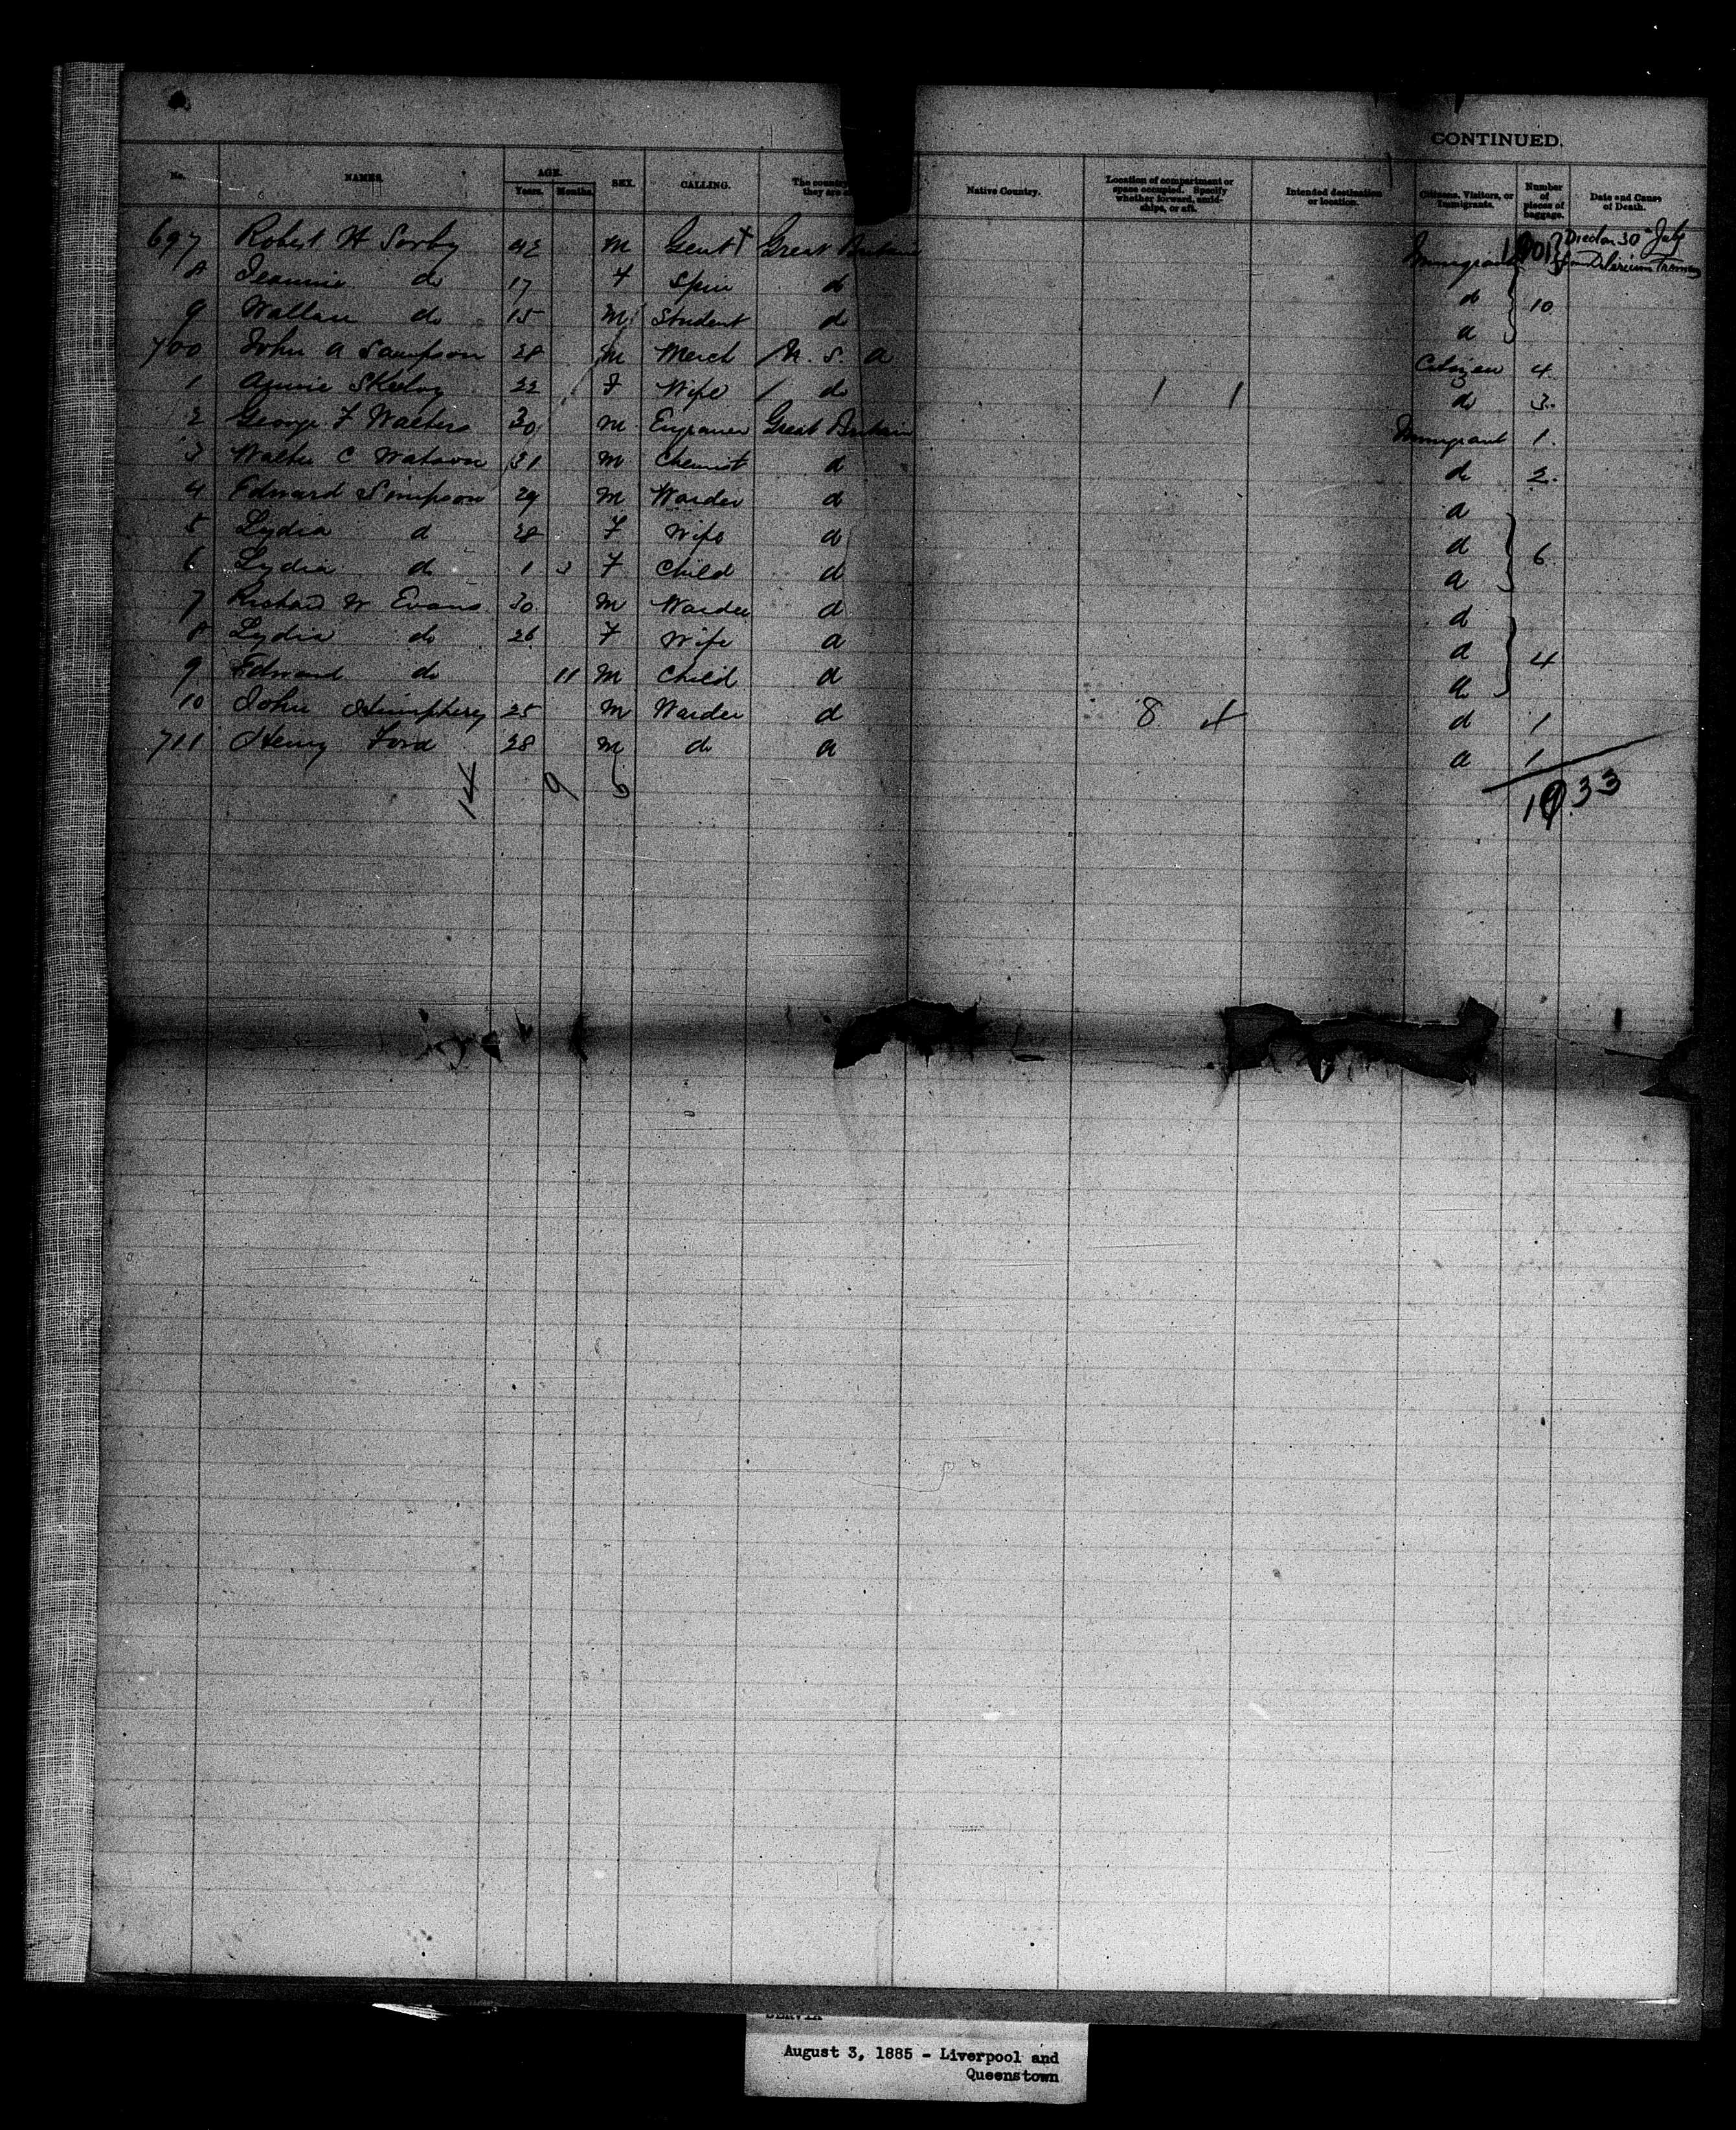 CONTINUED.
No. NAMES. AGE. Years. Months. SEX. CALLING. The country Native Country. Location of compartment or space occupied. Specify whether forward, amidships, or aft. Intended destination or location. Citizens, Visitors, or Immigrants. Number of pieces of baggage. Date and Cause of Death.
697 Robert H Sorby 42 M Gent + Great Britain Immigrant Died on 30 July
8 Jeannie do 17 f Spin do do 10
9 Wallace do 15 M Student do do
700 John A Sampson 28 M Merch U. S. A Citizen 4
1 Annie 22 F Wife do 1 1 do 3
2 George F Walters 30 M Engraver Great Britain Immigrant 1
3 Walter C Watson 31 M Chemist d d 2
4 Edward Simpson 29 M Warder d d
5 Lydia d 28 F Wife d d 6
6 Lydia do 1 3 F Child d d
7 Richard W Evans 30 M Warder d d
8 Lydia do 26 F Wife d d 4
9 Edward do 11 M Child d d
10 John Humphery 25 M Warder d 8 4 d 1
711 Henry Ford 28 M do d d 1
14 9 6 33
August 3, 1885 - Liverpool and
Queenstown